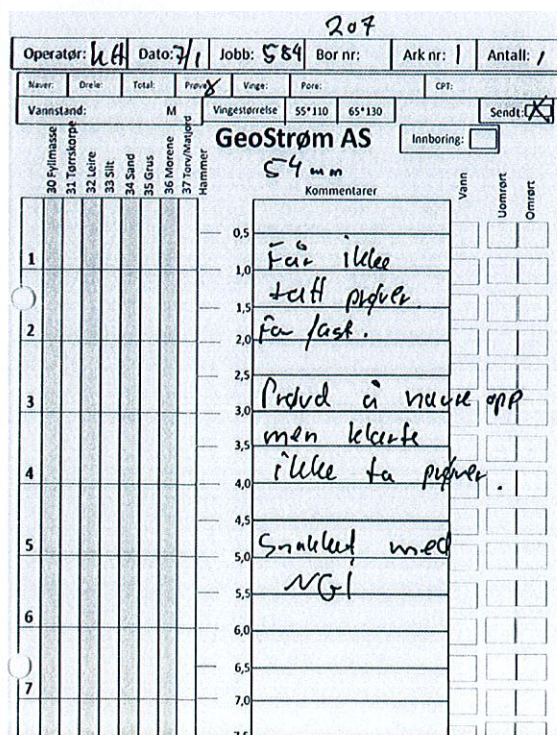 207
Operatør: KA Dato: 7/1 Jobb: 584 Bor nr: Ark nr: 1 Antall: 1
Naver: Dreie: Total: Prøve: X Vinge: Pore: CPT:
Vannstand: M Vingestørrelse 55*110 65*130 Sendt: X
GeoStrøm AS Innboring:
54 mm
30 Fyllmasse
31 Tørrskorpe
32 Leire
33 Silt
34 Sand
35 Grus
36 Morene
37 Torv/Matjord
Hammer
Kommentarer
Vann
Uomrørt
Omrørt
0,5
1 Får ikke
1,0
tatt prøver.
1,5
2 For fast.
2,0
2,5
3 Prøvd å navre opp
3,0
men klarte
3,5
4 ikke ta prøver.
4,0
4,5
5 Snakket med
5,0
NGI
5,5
6
6,0
6,5
7
7,0
7,5